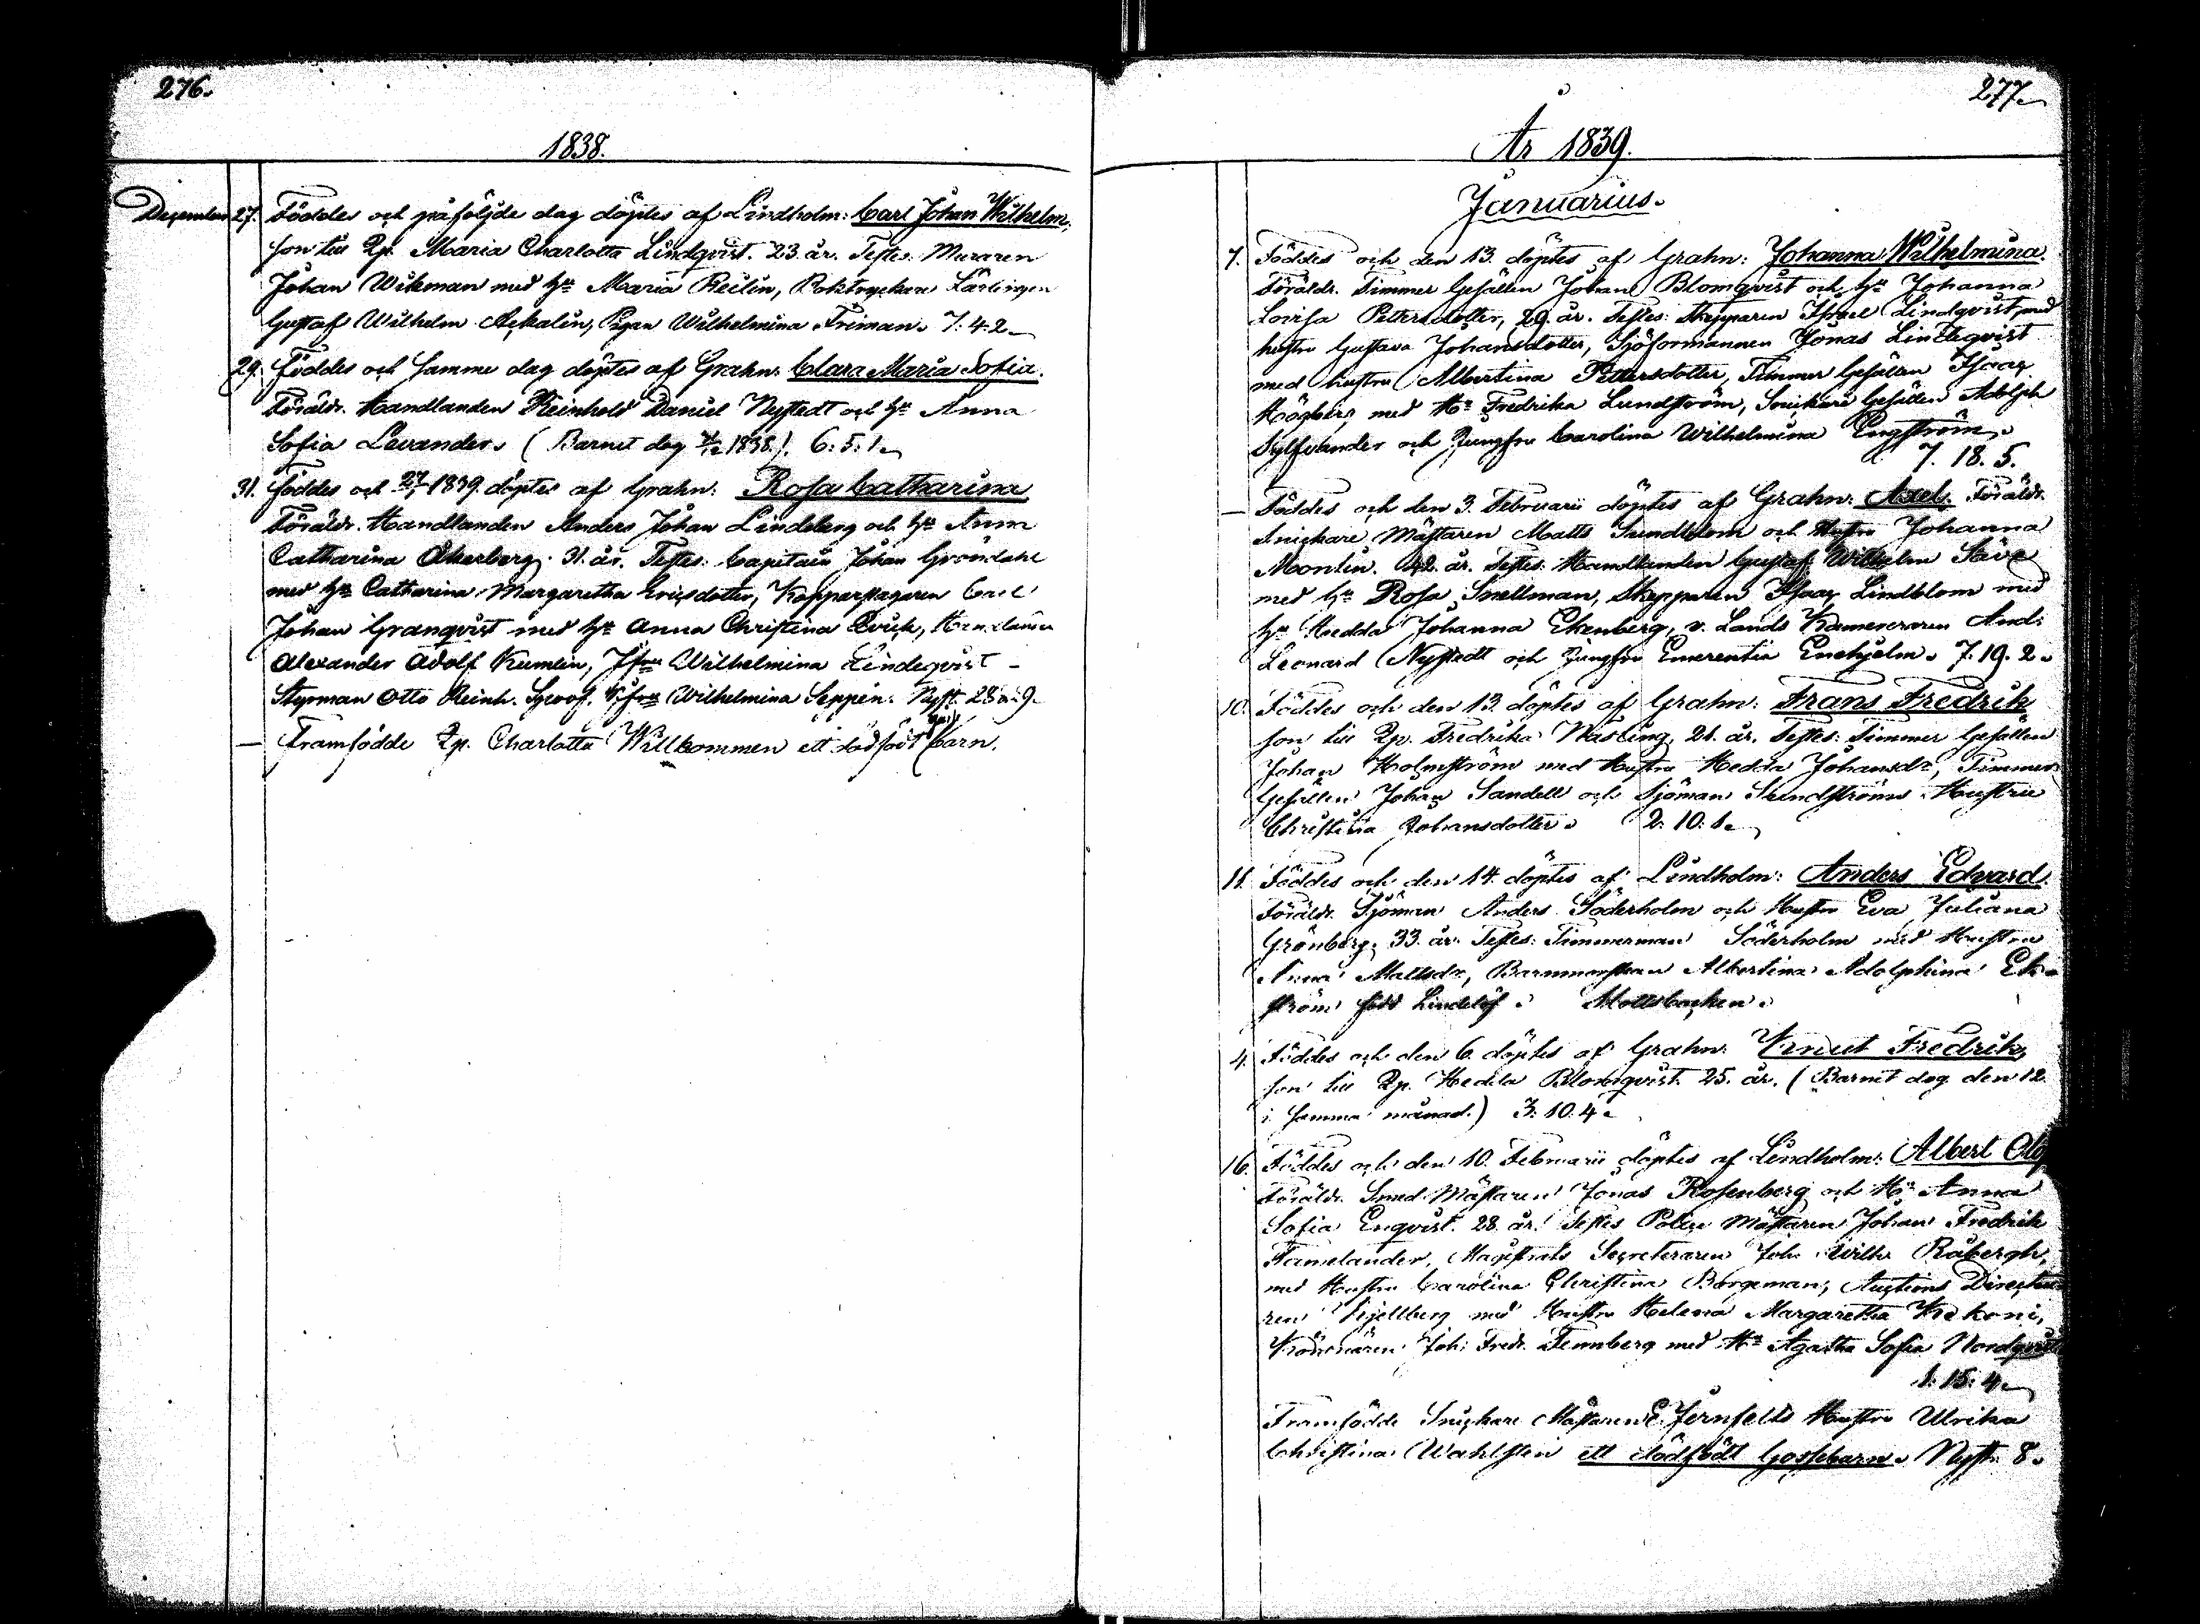 276.
1838.
December 27. Föddes och påföljde dag döptes af Lindholm: Carl Johan Wilhelm,
son till Qp. Maria Charlotta Lindqvist. 23. år. Testes. Muraren
Johan Wikman med hu Maria Reilin, Boktryckare Lärlingen
Gustaf Wilhelm Ackalin, Pigan Wilhelmina Friman. 7. 4. 2.
29. Föddes och samme dag döptes af Grahn: Clara Maria Sofia.
Föräldr. Handlanden Reinhold Daniel Nystedt och hu Anna
Sofia Levander. (Barnet dog 1838.). 6: 5: 1.
31. Föddes och 27/1 1839. döptes af Grahn: Rosa Catharina
Föräldr. Handlanden Anders Johan Lindeberg och hu Anna
Catharina Åkerberg. 31. år. Testes: Capitain Johan Gröndahl
med hu Catharina Margaretha Ericsdotter, Kopparslagaren Carl
Johan Granqvist med hu Anna Christina, Handlanden
Alexander Adolf Kumlin, Jfru Wilhelmina Lindeqvist –
Styrman Otto Reinh. Sjroos. Jfru Wilhelmina Seppin. Nyst. 28 a. 9.
— Framfödde Qp. Charlotta Willkommen ett dödfödt barn.
277.
År 1839.
Januarius.
7. Föddes och den 13. döptes af Grahn: Johanna Wilhelmina.
Föräldr. Timmer Gesällen Johan Blomqvist och hu Johanna
Lovisa Petersdotter, 29. år. Testes: Skepparen Israel Lindqvist med
hustru Gustava Johansdotter, Sjöformannen Jonas Lindeqvist
med hustru Albertina Pettersdotter, Timmer Gesällen Isaac
Högberg med Hu Fredrika Lundström, Snickare Gesällen Adolph
Sylfvander och Jungfru Carolina Wilhelmina Engström.
7. 18. 5.
— Föddes och den 3. Februarii döptes af Grahn: Axel. Föräldr.
Snickare Mästaren Matts Sundblom och Hustru Johanna
Montin. 42. år. Testes: Handlanden Gustaf Wilhelm Säve
med hu Rosa Snellman, Skepparen Isaac Lindblom med
hu Hedda Johanna Ekenberg, v. Lands Kamereraren And:
Leonard Nystedt och Jungfru Emerentia Enehjelm. 7. 19. 2.
10. Föddes och den 13. döptes af Grahn: Frans Fredrik
son till Qp. Fredrika Wasling, 21. år. Testes: Timmer Gesällen
Johan Holmström med Hustru Hedda Johansdr, Timmer
Gesällen Johan Sandell och Sjöman Sundströms Hustru
Christina Johansdotter. 2. 10: 1.
11. Föddes och den 14. döptes af Lindholm: Anders Edvard.
Föräldr. Sjöman Anders Söderholm och Hustru Eva Juliana
Grönberg, 33. år. Testes: Timmerman Söderholm med Hustru
Anna Mattsdr, Barnmorskan Albertina Adolphina Ek-
ström född Lindelöf. Mattsbacken.
4. Föddes och den 6. döptes af Grahn: Knut Fredrik,
son till Qp. Hedda Blomqvist. 25. år. (Barnet dog den 12.
i samma månad.) 3: 10. 4.
16. Föddes och den 10. Februarii döptes af Lindholm: Albert
Föräldr. Smed Mästaren Jonas Rosenberg och Hu Anna
Sofia Enqvist. 28. år. Testes Police Mästaren Johan Fredrik
Famelander, Magistrats Secreteraren Joh: Wilh. Råbergh,
med Hustru Carolina Christina Borgman, Auctions Directeu-
ren Kjellberg med Hustru Helena Margaretha Krekoni,
Joh: Fredr. Tennberg med Hu Agatha Sofia Nordqvist
1: 15: 4.
Framfödde Snickare Mästaren E. Jernfelts Hustru Ulrika
Christina Wahlsten ett dödfödt Gossebarn. Nyst. 8.